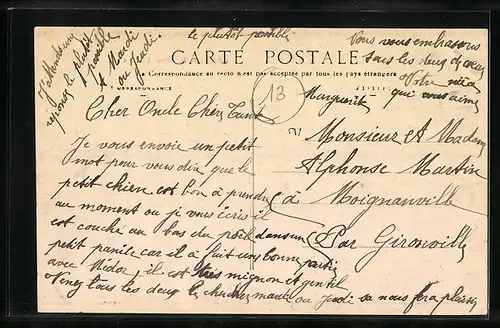 J'attends une
reponse le plutôt
possible
le Mardi
ou Jeudi.
le plutôt possible
Vous vous embrassons
tous les deux de cœur
Votre nièce
qui vous aime
Marguerite
CARTE POSTALE
La Correspondance au recto n'est pas acceptée par tous les pays étrangers
CORRESPONDANCE
13
Cher Oncle Chère Tante
Je vous envoie un petit
mot pour vous dire que le
petit chien est bon à prendre
au moment ou je vous écris il
est couché au bas du poêle dans un
petit panile car il a fait une bonne partie
avec Médor, il est très mignon et gentil
Venez tous les deux le chercher mardi ou Jeudi sa nous fera plaisir
Monsieur et Madame
Alphonse Martin
à Moignanville
Par Gironville